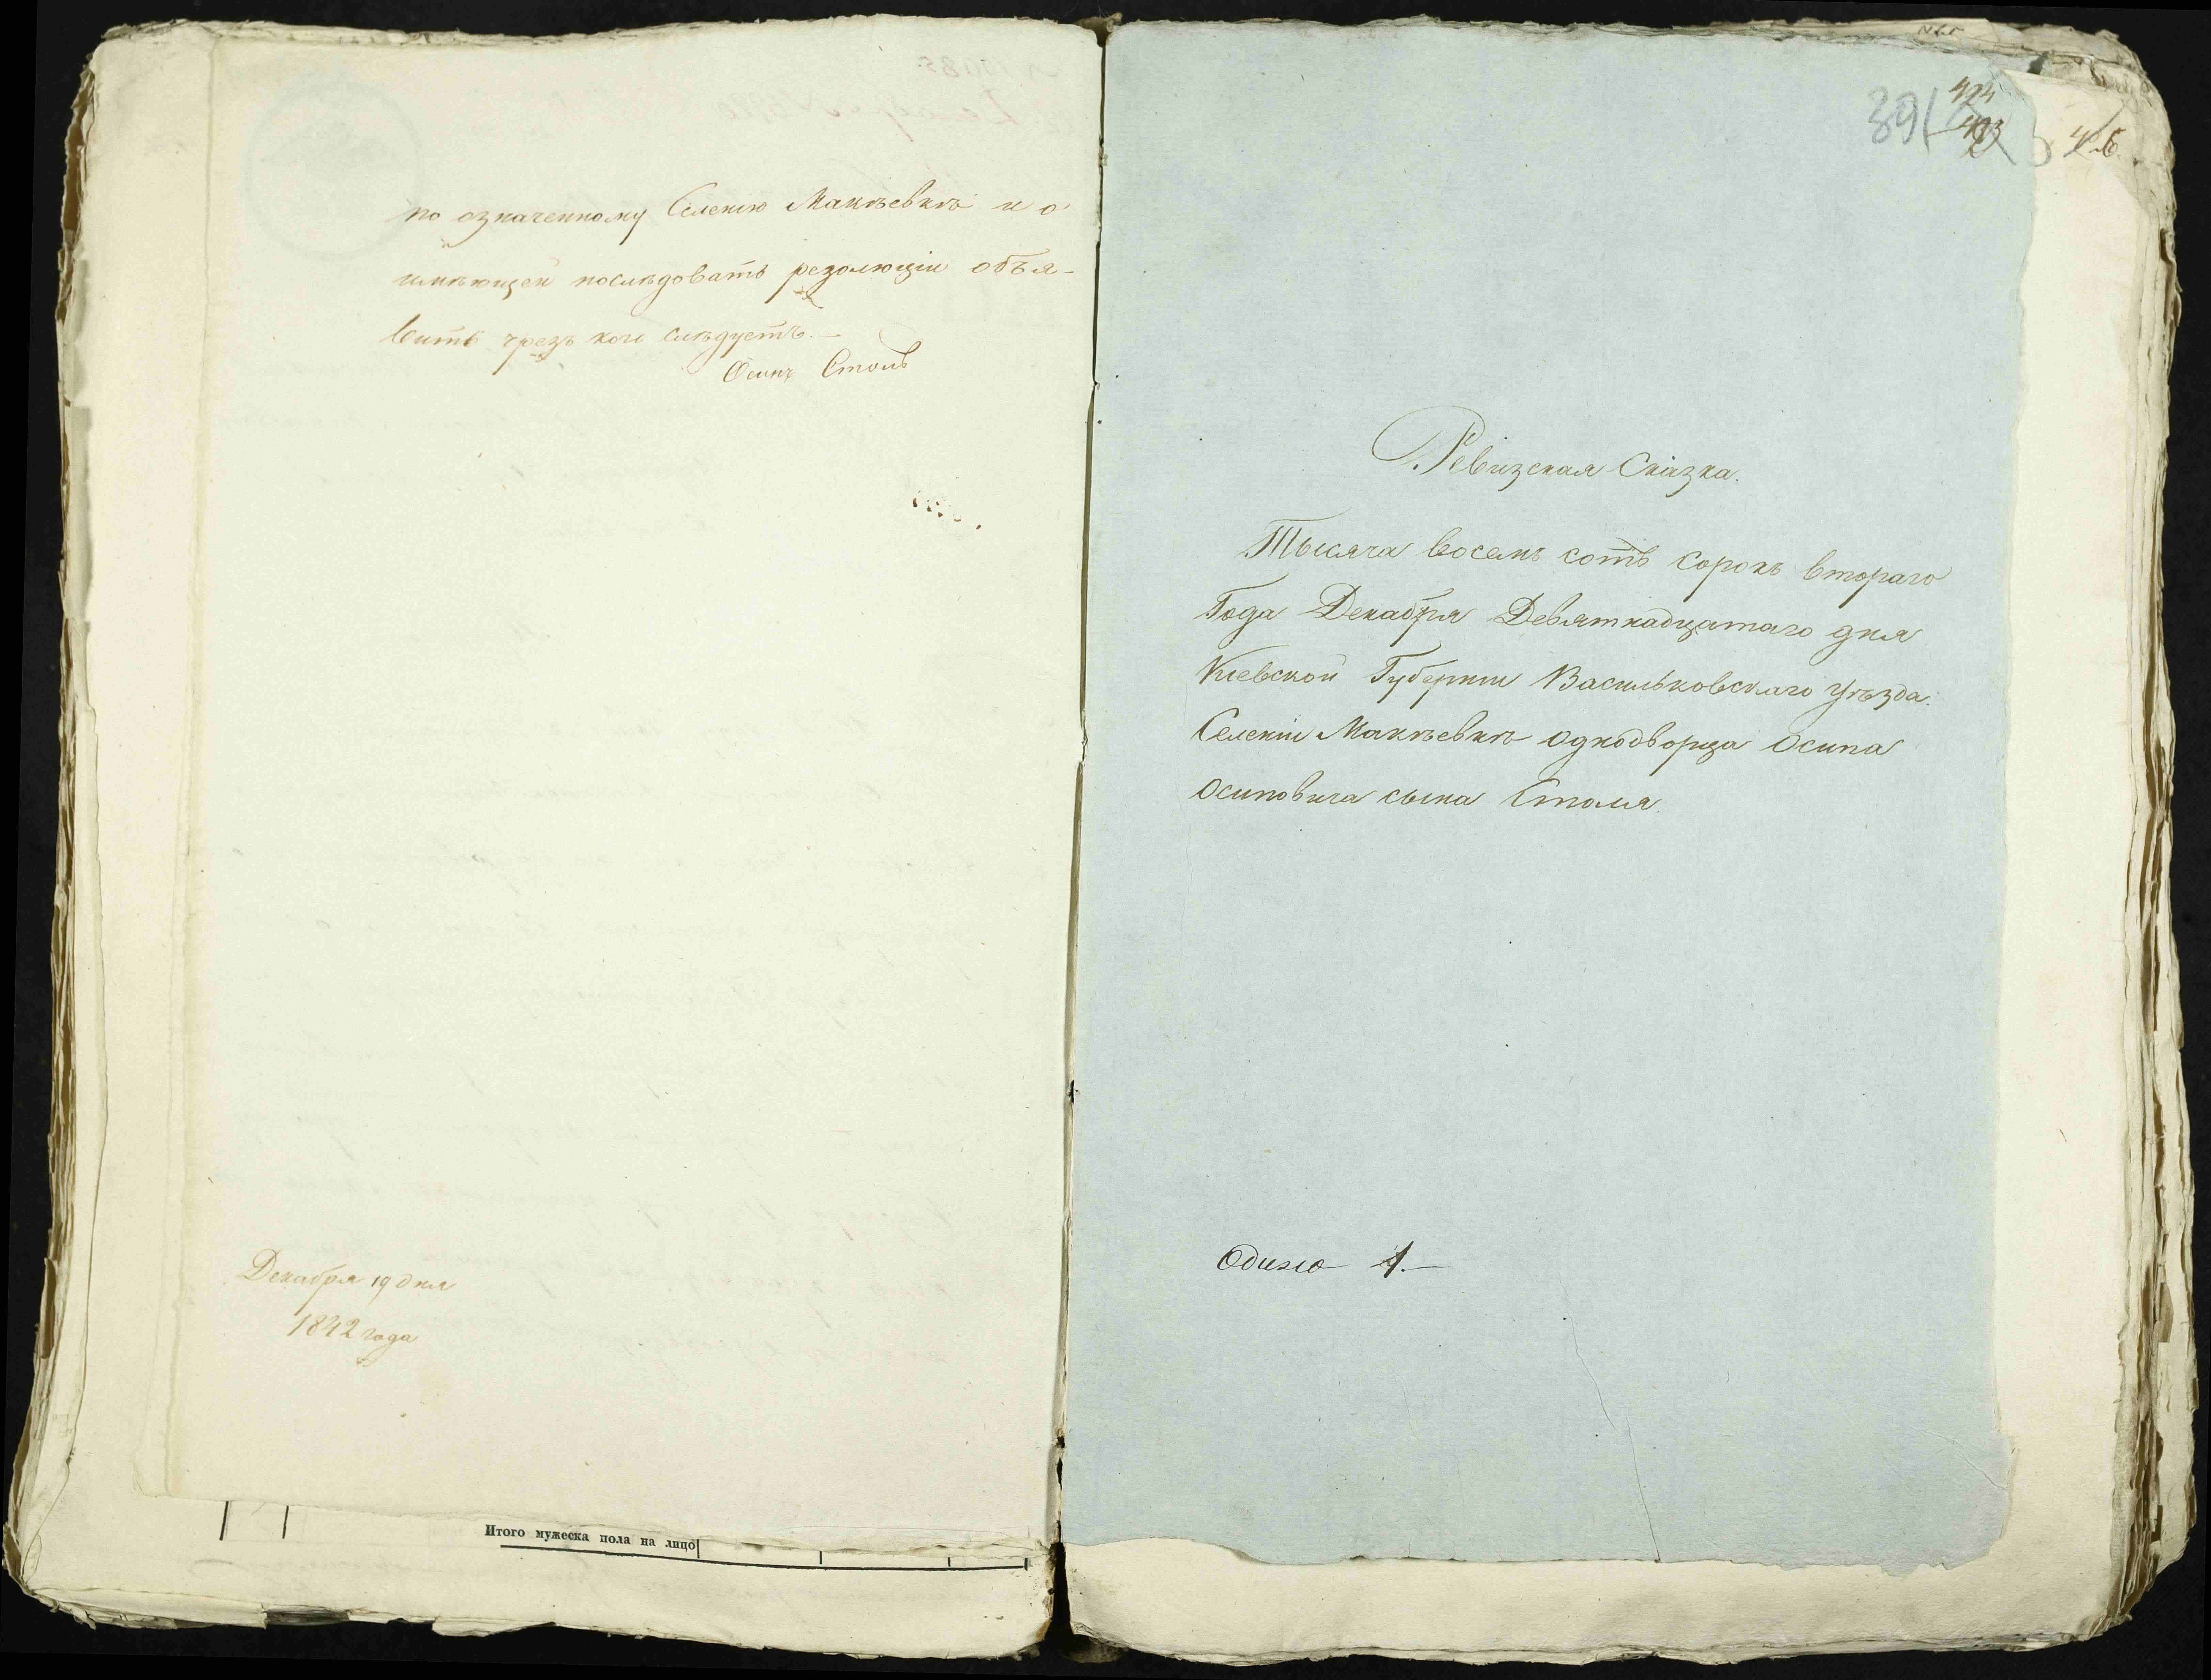 по означенному Селенію Макѣевкѣ и о
имѣющей послѣдовать резолюціи объя-
вить чрезъ кого слѣдуетъ.
Осипъ Столь
Декабря 19 дня
1842 года
Итого мужеска пола на лицо
391
424
423
Ревизская Сказка.
Тысяча восемь сотъ сорокъ втораго
Года Декабря Девятнадцатаго дня
Кіевской Губерніи Васильковскаго уѣзда.
Селенія Макѣевки однодворца Осипа
Осиповича сына Столя.
Одино 1.—